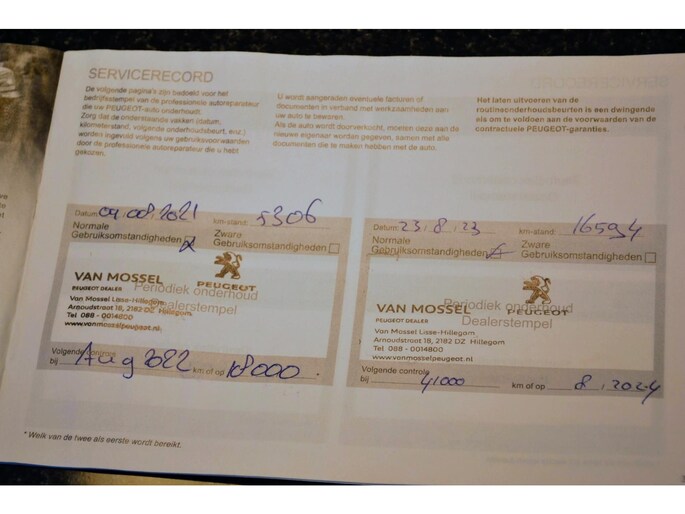 SERVICERECORD
De volgende pagina's zijn bedoeld voor het
bedrijfsstempel van de professionele autoreparateur
die uw PEUGEOT-auto onderhoudt.
Zorg dat de onderstaande vakken (datum,
kilometerstand, volgende onderhoudsbeurt, enz.)
worden ingevuld volgens uw gebruiksvoorwaarden
door de professionele autoreparateur die u hebt
gekozen.
U wordt aangeraden eventuele facturen of
documenten in verband met werkzaamheden aan
uw auto te bewaren.
Als de auto wordt doorverkocht, moeten deze aan de
nieuwe eigenaar worden gegeven, samen met alle
documenten die te maken hebben met de auto.
Het laten uitvoeren van de
routineonderhoudsbeurten is een dwingende
eis om te voldoen aan de voorwaarden van de
contractuele PEUGEOT-garanties.
Datum: 04.08.2021 km-stand: 5306
Normale
Gebruiksomstandigheden
Zware
Gebruiksomstandigheden
Periodiek onderhoud
Dealerstempel
VAN MOSSEL
PEUGEOT DEALER
PEUGEOT
Van Mossel Lisse-Hillegom
Arnoudstraat 18, 2182 DZ Hillegom
Tel 088 - 0014800
www.vanmosselpeugeot.nl
Volgende controle
bij Aug 2022 km of op
Datum: 23.8.23 km-stand: 16594
Normale
Gebruiksomstandigheden
Zware
Gebruiksomstandigheden
Periodiek onderhoud
Dealerstempel
VAN MOSSEL
PEUGEOT DEALER
PEUGEOT
Van Mossel Lisse-Hillegom
Arnoudstraat 18, 2182 DZ Hillegom
Tel 088 - 0014800
www.vanmosselpeugeot.nl
Volgende controle
bij 41000 km of op 8.2024
* Welk van de twee als eerste wordt bereikt.